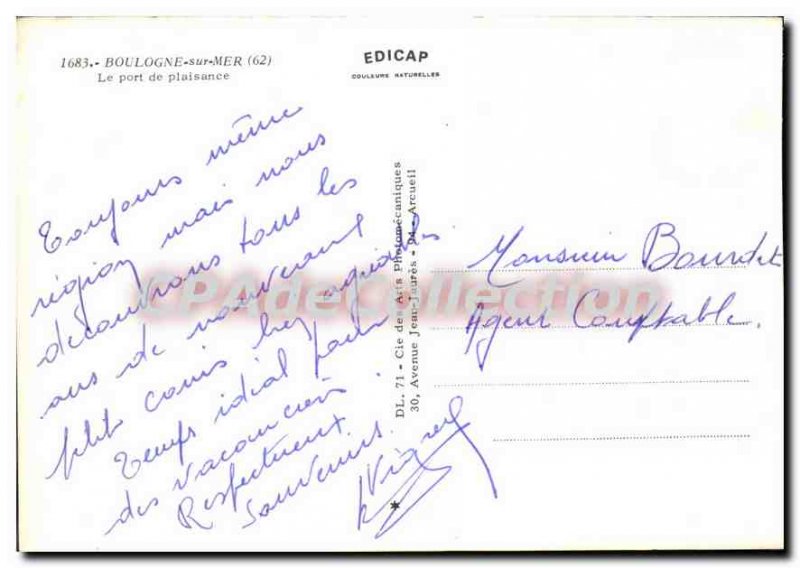 1683.- BOULOGNE-sur-MER (62)
Le port de plaisance
EDICAP
COULEURS NATURELLES
Toujours même
région mais nous
découvrons tous les
ans de nouveaux
ptits coins
Temps idéal pour
des vacanciers.
Respectueux
souvenirs.
DL. 71 - Cie des Arts Photomécaniques
30, Avenue Jean-Jaurès - 94 - Arcueil
Monsieur Bourdet
Agent Comptable.
CPAdeCollection